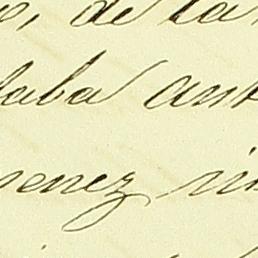 , de la
laba ant
enez vi